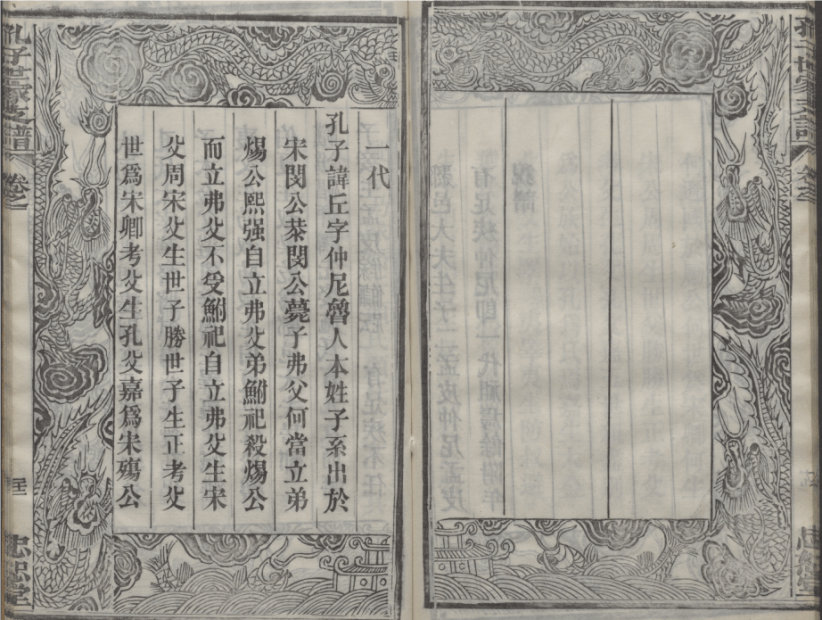 孔子世家支譜
卷之
忠恕堂
一代
孔子諱丘字仲尼魯人本姓子系出於
宋閔公恭閔公薨子弗父何當立弟
煬公熙强自立弗父弟鮒祀殺煬公
而立弗父不受鮒祀自立弗父生宋
父周宋父生世子勝世子生正考父
世爲宋卿考父生孔父嘉爲宋殤公
孔子世家支譜
卷之
忠恕堂